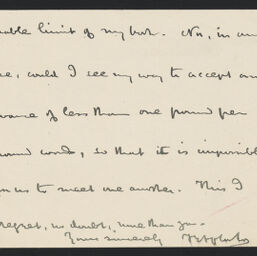 nable limit of my book. No, in an
se, could I see my way to accept an
vance of less than one pound per
ousand words, so that it is impossible
for us to meet one another. This I
regret, no doubt, more than you.
Yours sincerely